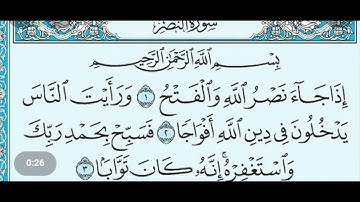 سُورَةُ النَّصْرِ
بِسْمِ اللَّهِ الرَّحْمَٰنِ الرَّحِيمِ
إِذَا جَآءَ نَصْرُ اللَّهِ وَالْفَتْحُ ١ وَرَأَيْتَ النَّاسَ
يَدْخُلُونَ فِي دِينِ اللَّهِ أَفْوَاجًا ٢ فَسَبِّحْ بِحَمْدِ رَبِّكَ
وَاسْتَغْفِرْهُ ۚ إِنَّهُ كَانَ تَوَّابًا ٣
0:26